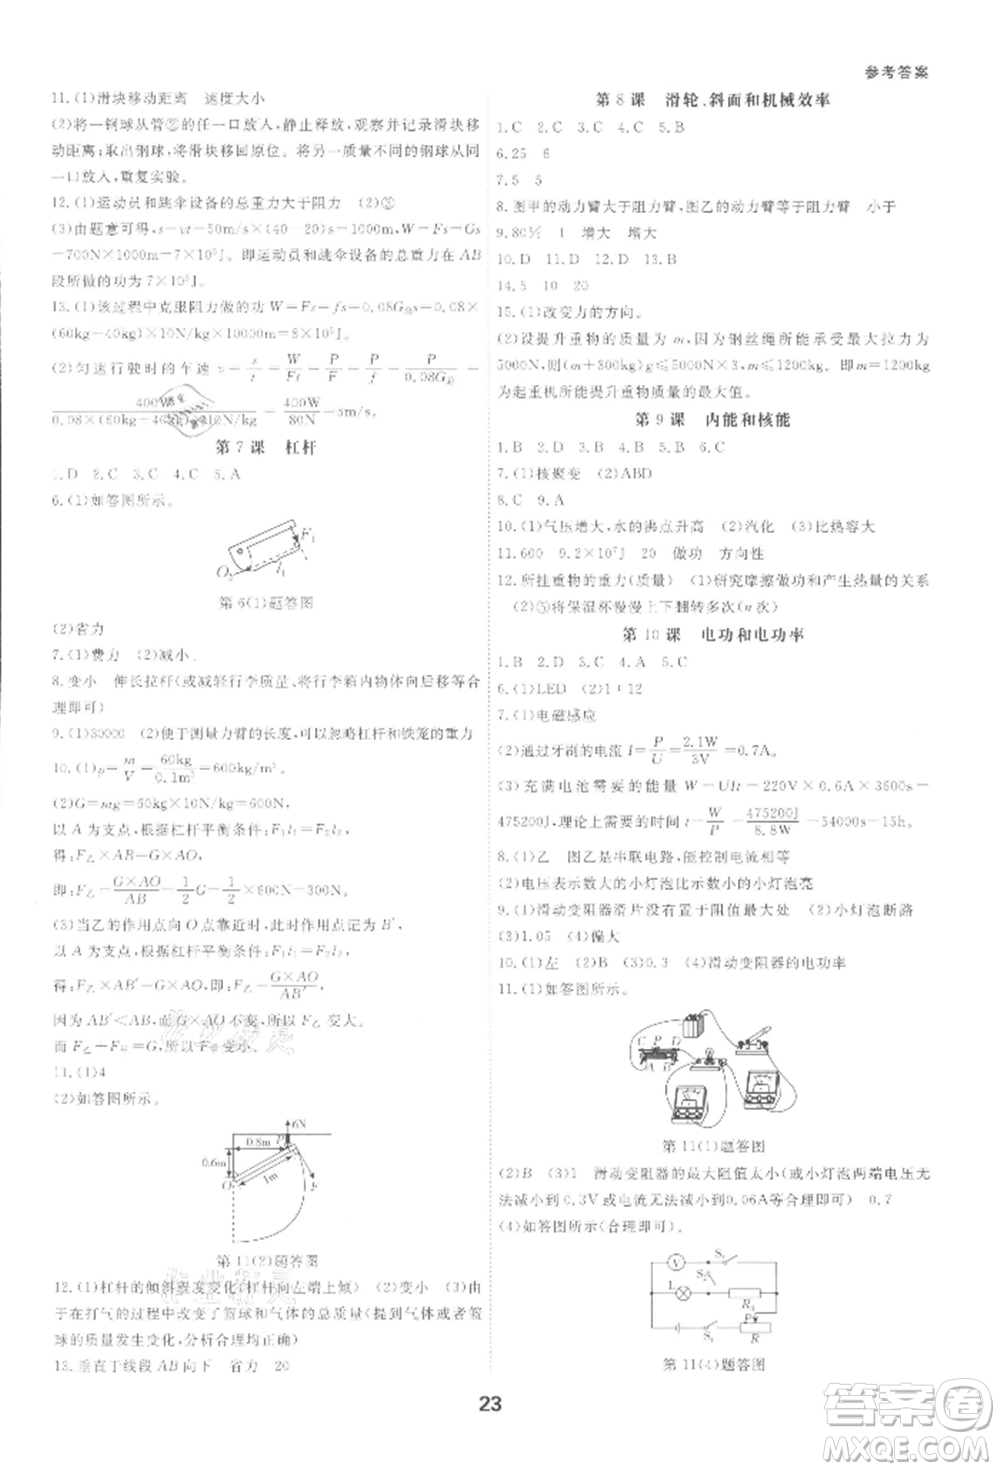 参考答案
11.(1)滑块移动距离 速度大小
(2)将一钢球从管②的任一口放入,静止释放,观察并记录滑块移
动距离;取出钢球,将滑块移回原位。将另一质量不同的钢球从同
一口放入,重复实验。
12.(1)运动员和跳伞设备的总重力大于阻力 (2)③
(3)由题意可得,s=vt=50m/s×(40-20)s=1000m,W=Fs=Gs
=700N×1000m=7×10⁵J。运动员和跳伞设备的总重力在AB
段所做的功为7×10⁵J。
13.(1)该过程中克服阻力做的功 W=Fs=fs=0.08G总s=0.08×
(60kg+40kg)×10N/kg×10000m=8×10⁵J。
(2)匀速行驶时的车速 v=s/t=W/Ft=P/F=P/f=P/0.08G总=
400W/0.08×(60kg+40kg)×10N/kg=400W/80N=5m/s。
第 7 课 杠杆
1.D 2.C 3.C 4.C 5.A
6.(1)如答图所示。
F₁
O₂ l₁
第6(1)题答图
(2)省力
7.(1)费力 (2)减小
8.变小 伸长拉杆(或减轻行李质量、将行李箱内物体向后移等合
理即可)
9.(1)30000 (2)便于测量力臂的长度 (3)可以忽略杠杆和铁笼的重力
10.(1)ρ=m/V=60kg/0.1m³=600kg/m³。
(2)G=mg=60kg×10N/kg=600N。
以A为支点,根据杠杆平衡条件:F₁l₁=F₂l₂
得:F乙×AB=G×AO
即:F乙=G×AO/AB=1/2G=1/2×600N=300N。
(3)当乙的作用点向O点靠近时,此时作用点记为B′,
以A为支点,根据杠杆平衡条件:F₁l₁=F₂l₂
得:F乙×AB′=G×AO,F乙=G×AO/AB′
因为AB′<AB,而G×AO不变,所以F乙变大。
而F乙+F甲=G,所以F甲变小。
11.(1)4
(2)如答图所示。
6N
0.8m P
0.6m
O 1m F
第11(2)题答图
12.(1)杠杆的倾斜程度变化(杠杆向左端上倾) (2)变小 (3)用
在打气的过程中改变了篮球和气体的总质量(或者气体或者篮
球的质量发生变化,分析合理均正确)
13.垂直于线段AB向下 省力 20
第 8 课 滑轮、斜面和机械效率
1.C 2.C 3.C 4.C 5.B
6.25 6
7.5 5
8.图甲的动力臂大于阻力臂,图乙的动力臂等于阻力臂 小于
9.80% 1 增大 增大
10.D 11.D 12.B 13.D
14.5 10 20
15.(1)改变力的方向。
(2)设提升重物的质量为m,因为钢丝绳所能承受最大拉力为
5000N,则(m+300kg)g≤5000N×3,m≤1200kg。1200kg
为起重机所能提升重物质量的最大值。
第 9 课 内能和核能
1.B 2.D 3.B 4.B 5.D 6.D
7.(1)核聚变 (2)ABD
8.C 9.A
10.(1)气压增大,水的沸点升高 (2)汽化 (3)比热容大
11.600 9.2×10⁷J 20 做功 方向性
12.所挂重物的重力(质量) (1)研究摩擦做功和产生热量的关系
(2)⑤将保温杯慢慢上下翻转多次(n次)
第 10 课 电功和电功率
1.B 2.D 3.B 4.A 5.C
6.(1)LED (2)1∶12
7.(1)电磁感应
(2)通过牙刷的电流 I=P/U=2.1W/3V=0.7A。
(3)充满电池需要的能量 W=UIt=220V×0.6A×3600s=
475200J,理论上需要的时间 t=W/P=475200J/8.8W=54000s=15h。
8.(1)乙 图乙是串联电路,能控制电流相等
(2)电压表示数大的小灯泡比示数小的小灯泡亮
9.(1)滑动变阻器滑片没有置于阻值最大处 (2)小灯泡断路
(3)1.05 (4)偏大
10.(1)左 (2)B (3)0.3 (4)滑动变阻器的电功率
11.(1)如答图所示。
C P D
A B
第11(1)题答图
(2)B (3)1 滑动变阻器的最大阻值太小(或小灯泡两端电压无
法减小到0.3V或电流无法减小到0.06A等合理即可) 0.7
(4)如答图所示(合理即可)。
V S₁
L S₂
R₃
P
S₁ R
第11(4)题答图
23
答案圈
MXQE.COM